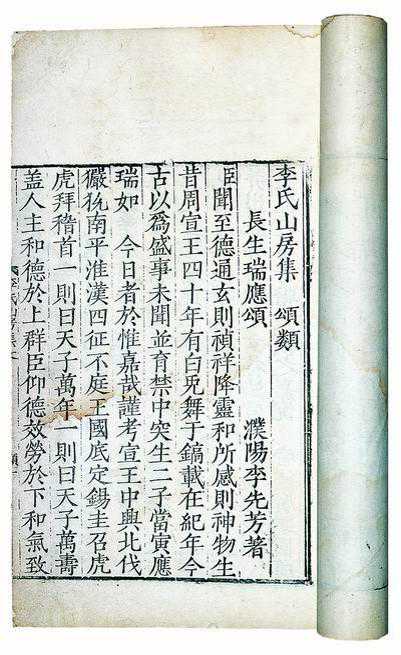 李氏山房集 頌類
長生瑞應頌 濮陽李先芳著
臣聞至德通玄則禎祥降靈和所感則神物生
昔周宣王四十年有白兎舞于鎬載在紀年今
古以爲盛事未聞並育禁中突生二子當寅應
瑞如 今日者於惟嘉哉謹考宣王中興北伐
玁狁南平淮漢四征不庭王國底定錫圭召虎
虎拜稽首一則曰天子萬年一則曰天子萬壽
盖人主和德於上群臣仰德效勞於下和氣致